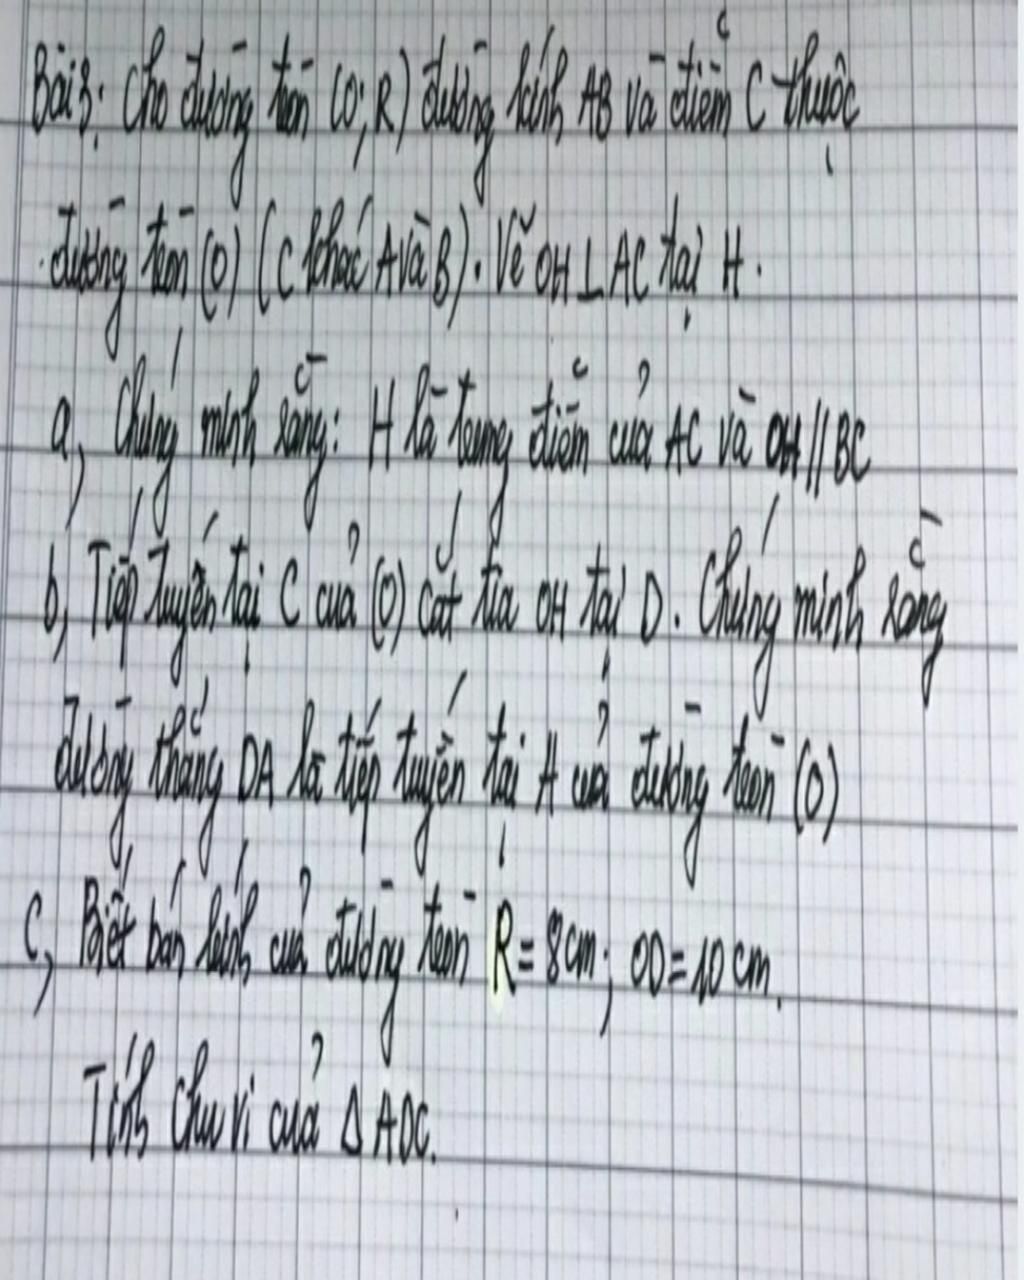 Bài 3: Cho đường tròn (O; R) đường kính AB và điểm C thuộc
đường tròn (O) (C khác A và B). Vẽ OH ⊥ AC tại H.
a, Chứng minh rằng: H là trung điểm của AC và OH // BC
b, Tiếp tuyến tại C của (O) cắt tia OH tại D. Chứng minh rằng
đường thẳng DA là tiếp tuyến tại A của đường tròn (O)
c, Biết bán kính của đường tròn R = 8cm; OD = 10 cm.
Tính chu vi của Δ ADC.